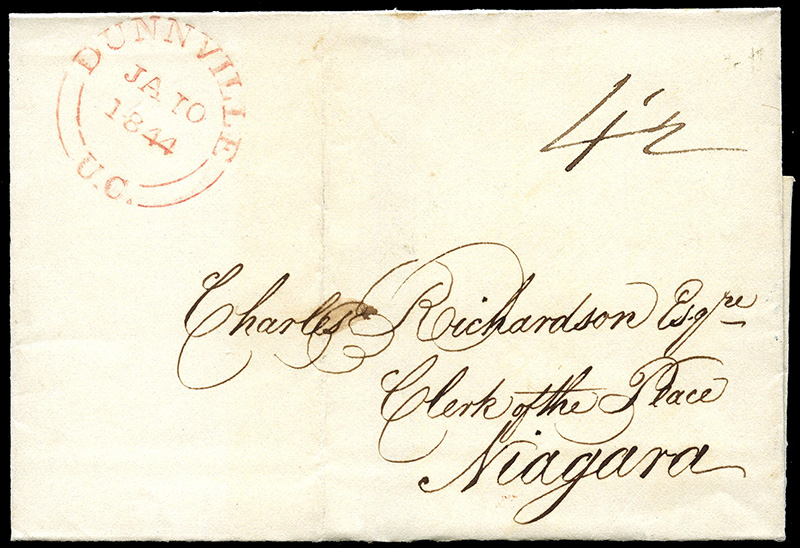 DUNNVILLE
JA 10
1844
U.C.
4½
Charles Richardson Esqre
Clerk of the Place
Niagara